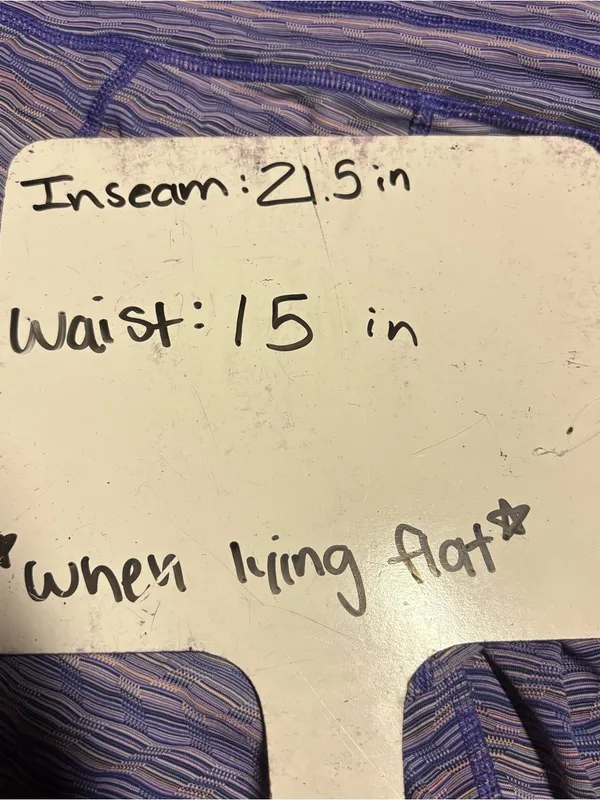 Inseam: 21.5 in
Waist: 15 in
*when lying flat*